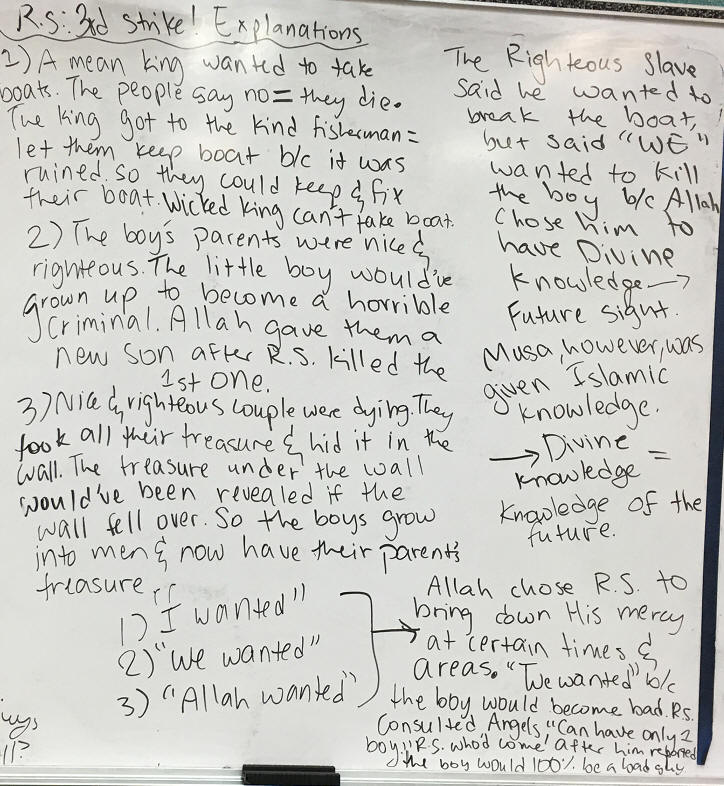 R.S: 3rd strike! Explanations
1) A mean king wanted to take
boats. The people say no = they die.
The king got to the kind fisherman =
let them keep boat b/c it was
ruined. So they could keep & fix
their boat. Wicked king can't take boat.
2) The boy's parents were nice &
righteous. The little boy would've
grown up to become a horrible
criminal. Allah gave them a
new son after R.S. killed the
1st one.
3) Nice & righteous couple were dying. They
took all their treasure & hid it in the
wall. The treasure under the wall
would've been revealed if the
wall fell over. So the boys grow
into men & now have their parent's
treasure.
1) "I wanted"
2) "We wanted"
3) "Allah wanted"
The Righteous Slave
said he wanted to
break the boat,
but said "WE"
wanted to kill
the boy b/c Allah
chose him to
have Divine
knowledge →
Future sight.
Musa, however, was
given Islamic
knowledge.
→ Divine =
knowledge
knowledge of the
future.
Allah chose R.S. to
bring down His mercy
at certain times &
areas. "We wanted" b/c
the boy would become bad. R.S.
Consulted Angels "Can have only 1
boy." R.S. who'd come after him reported
the boy would 100% be a bad guy
ways
ll?